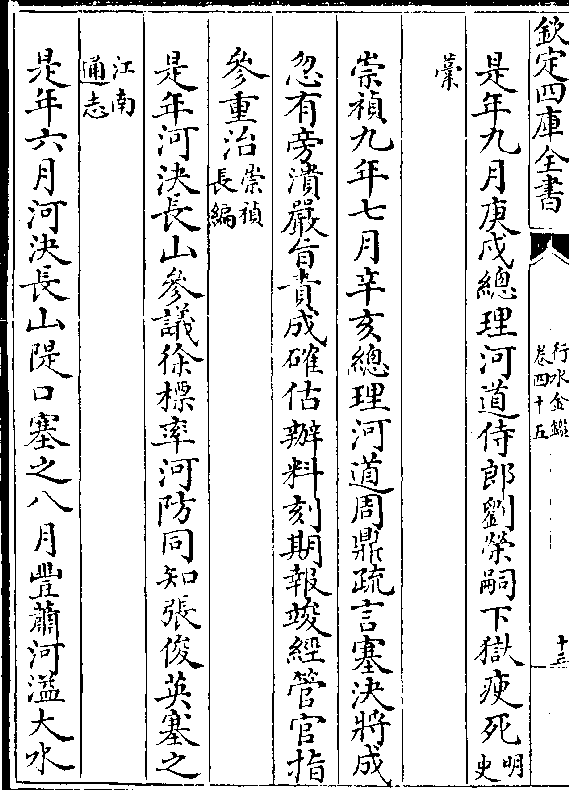 欽定四庫全書
行水金鑑
卷四十五
十三
是年九月庚戌總理河道侍郎劉榮嗣下獄瘐死明史
藁
崇禎九年七月辛亥總理河道周鼎疏言塞決將成
忽有旁潰嚴旨責成確估辦料刻期報竣經管官指
參重治崇禎長編
是年河決長山參議徐標率河防同知張俊英塞之
江南通志
是年六月河決長山隄口塞之八月豐蕭河溢大水